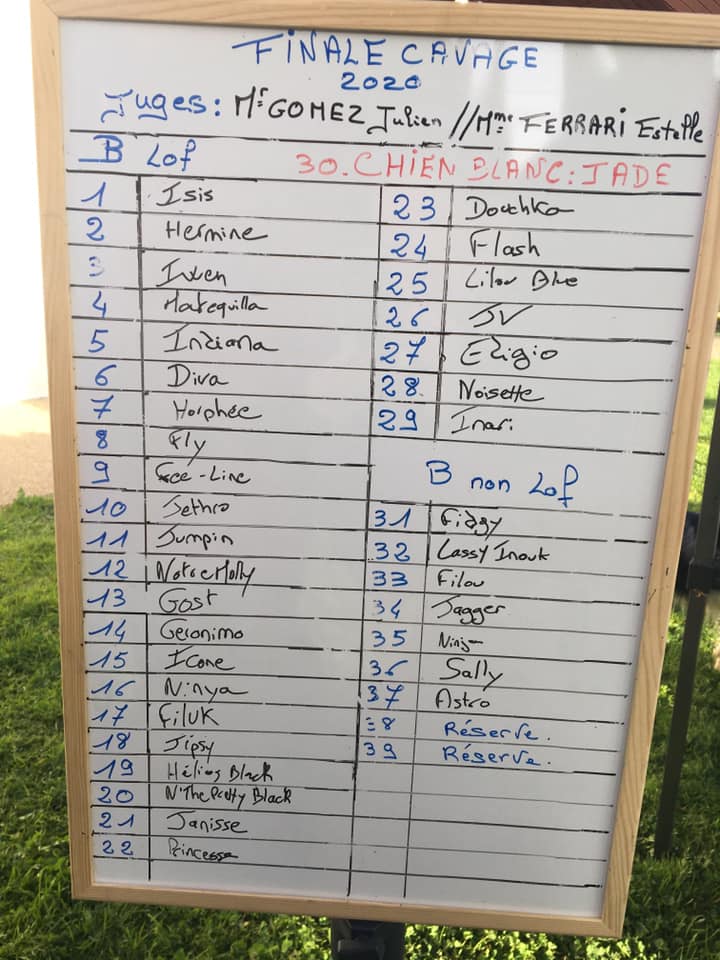 FINALE CAVAGE
2020
Juges: Mr GOMEZ Julien // Mme FERRARI Estelle
B Lof
30. CHIEN BLANC: JADE
1 Isis
2 Hermine
3
4
5 Indiana
6 Diva
7 Horphée
8 Fly
9
10 Jethro
11 Jumpin
12 Notre Molly
13 Gost
14 Geronimo
15 Icone
16 Ninya
17 Filuk
18 Jipsy
19 Hélios Black
20 N'The Pretty Black
21 Janisse
22 Princesse
23 Douchka
24 Flash
25 Lilou Blue
26
27 Eligio
28 Noisette
29 Inari
B non Lof
31
32 Lassy Inouk
33 Filou
34 Jagger
35 Ninja
36 Sally
37 Astro
38 Réserve.
39 Réserve.